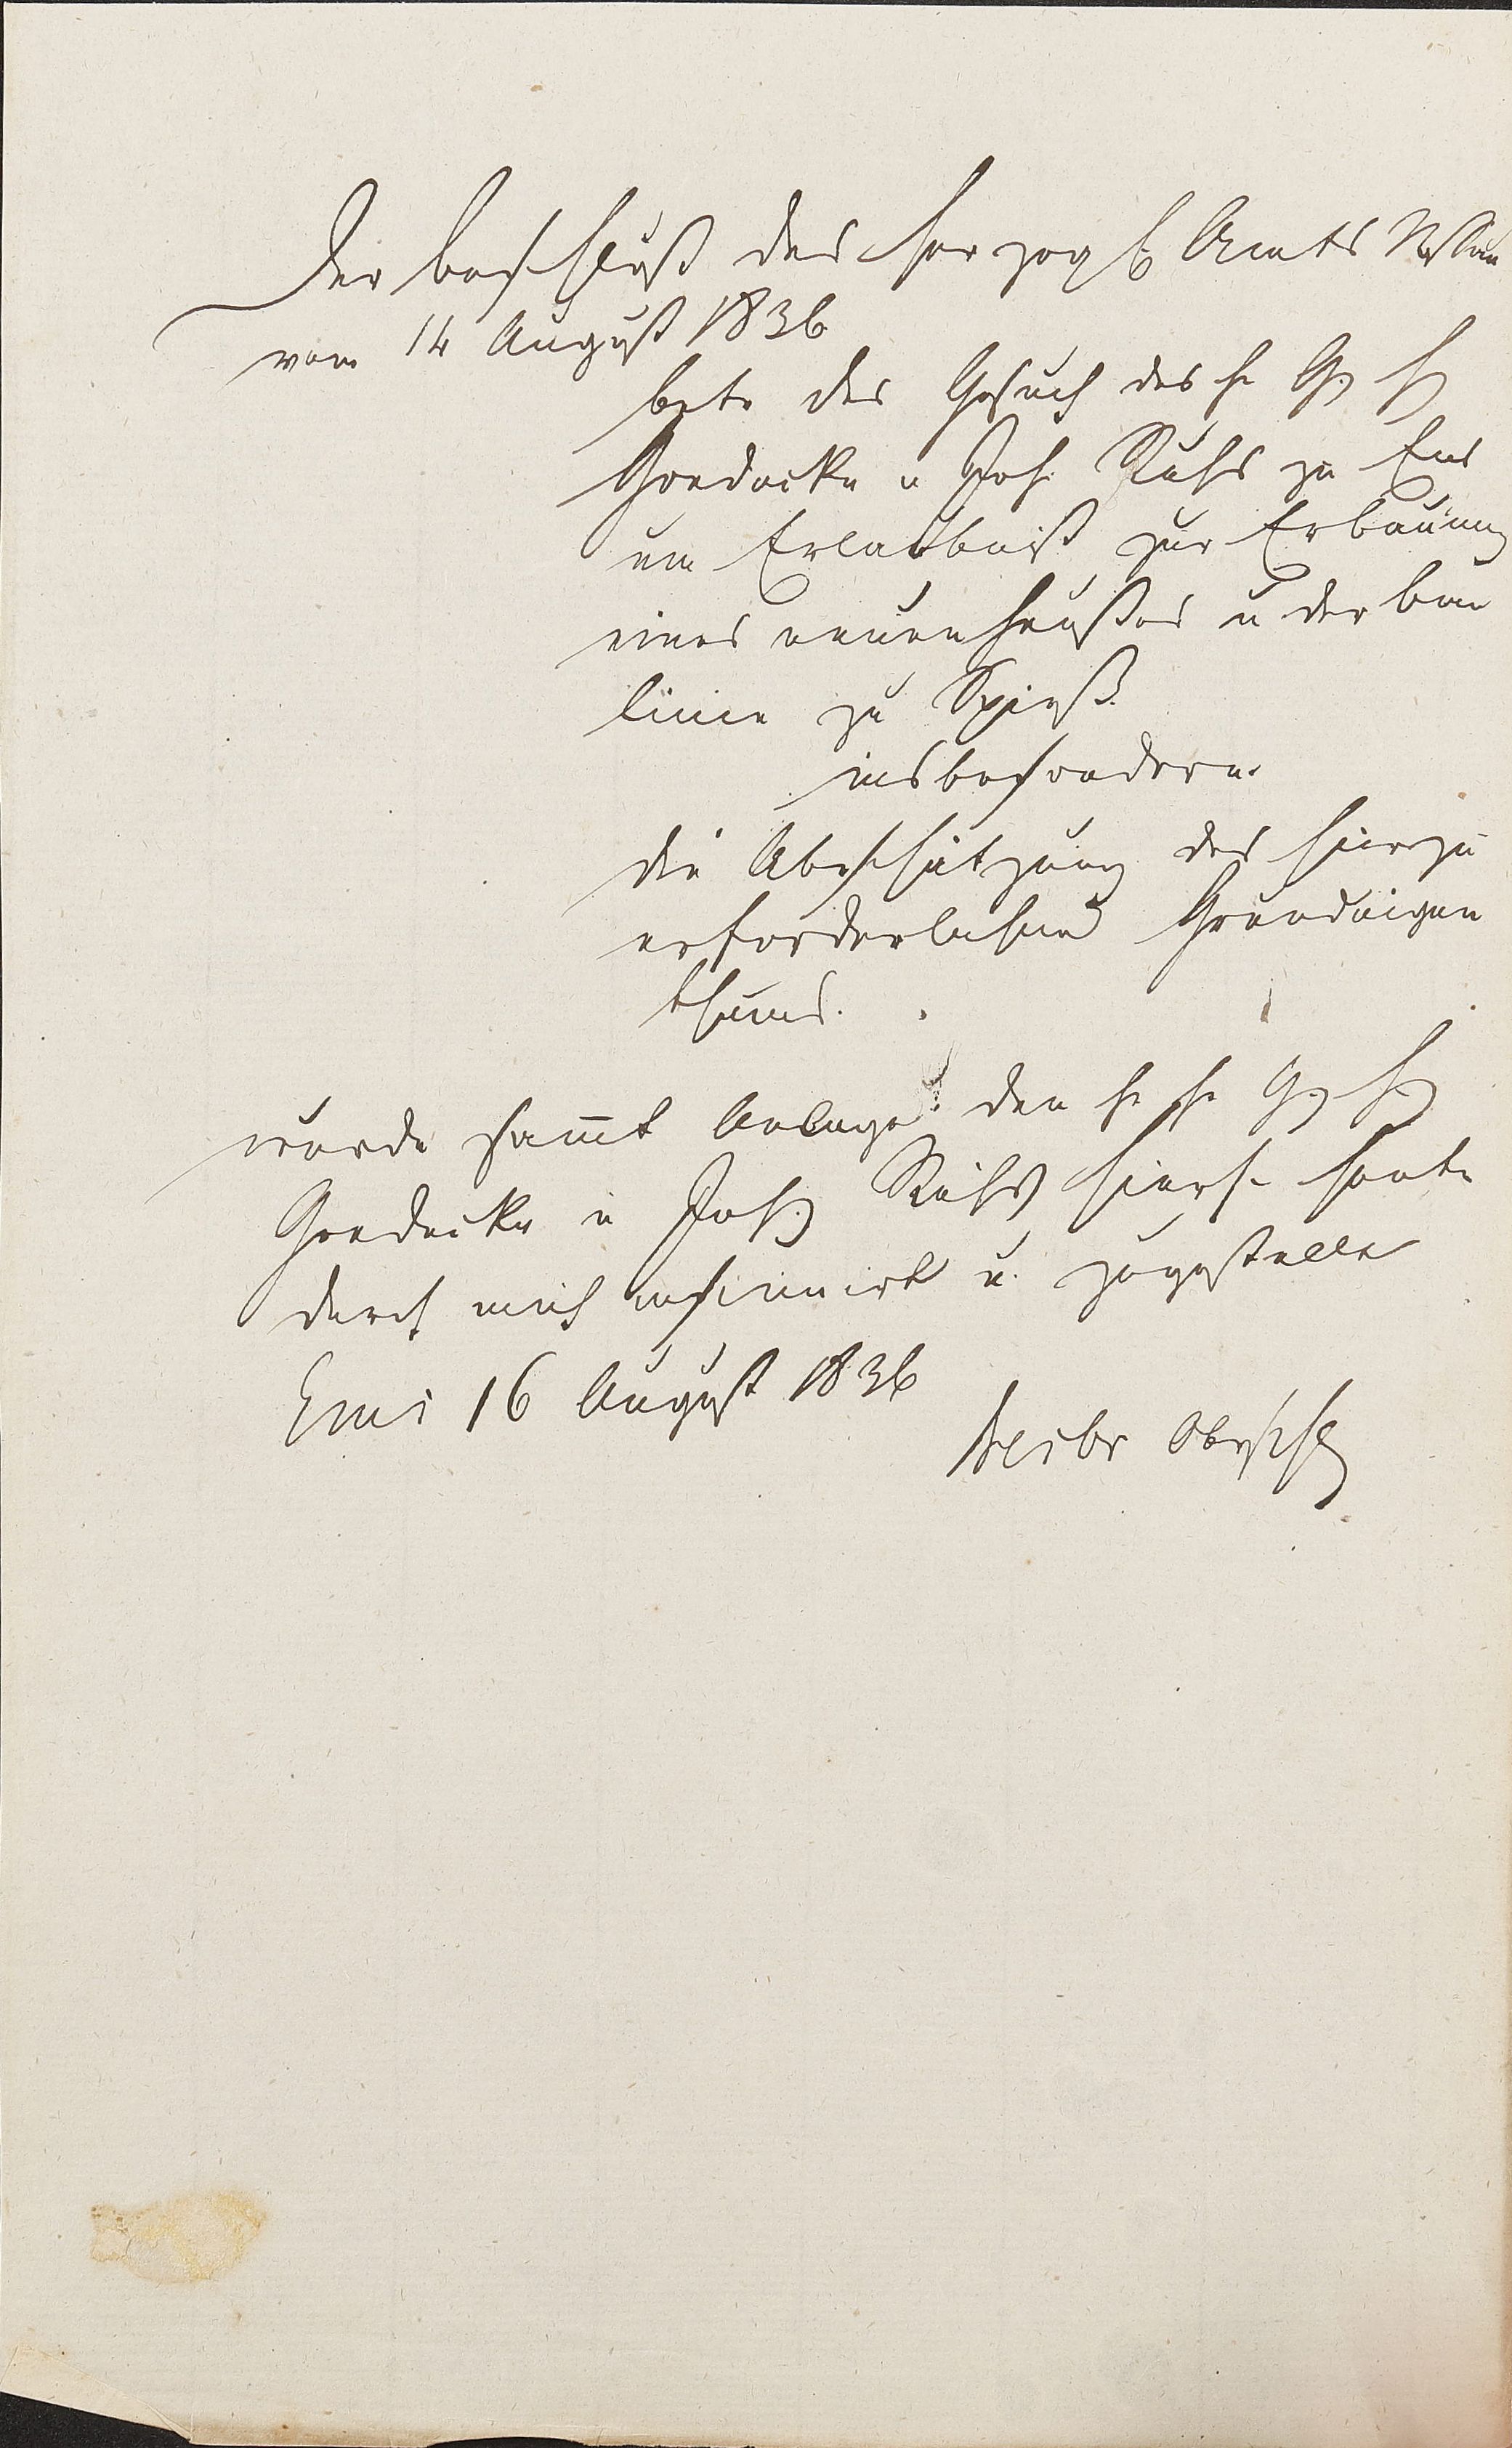 Der Beschluß des Herzogl Amts Nassau
vom 14 August 1836
betr das Gesuch des H. Gg Hch
Goedecke u Joh. Rühs zu Ems
um Erlaubniß zur Erbauung
eines neuen Haußes u der Bau
linie zu Spieß
insbesondere
die Abschätzung des hierzu
erforderlichen Grundeigen
thums.
wurde sammt Anlage den H. H. Gg Hch
Goedecke u Joh. Rühs hierselbst heute
durch mich insinuirt u. zugestellt
Ems 16 August 1836